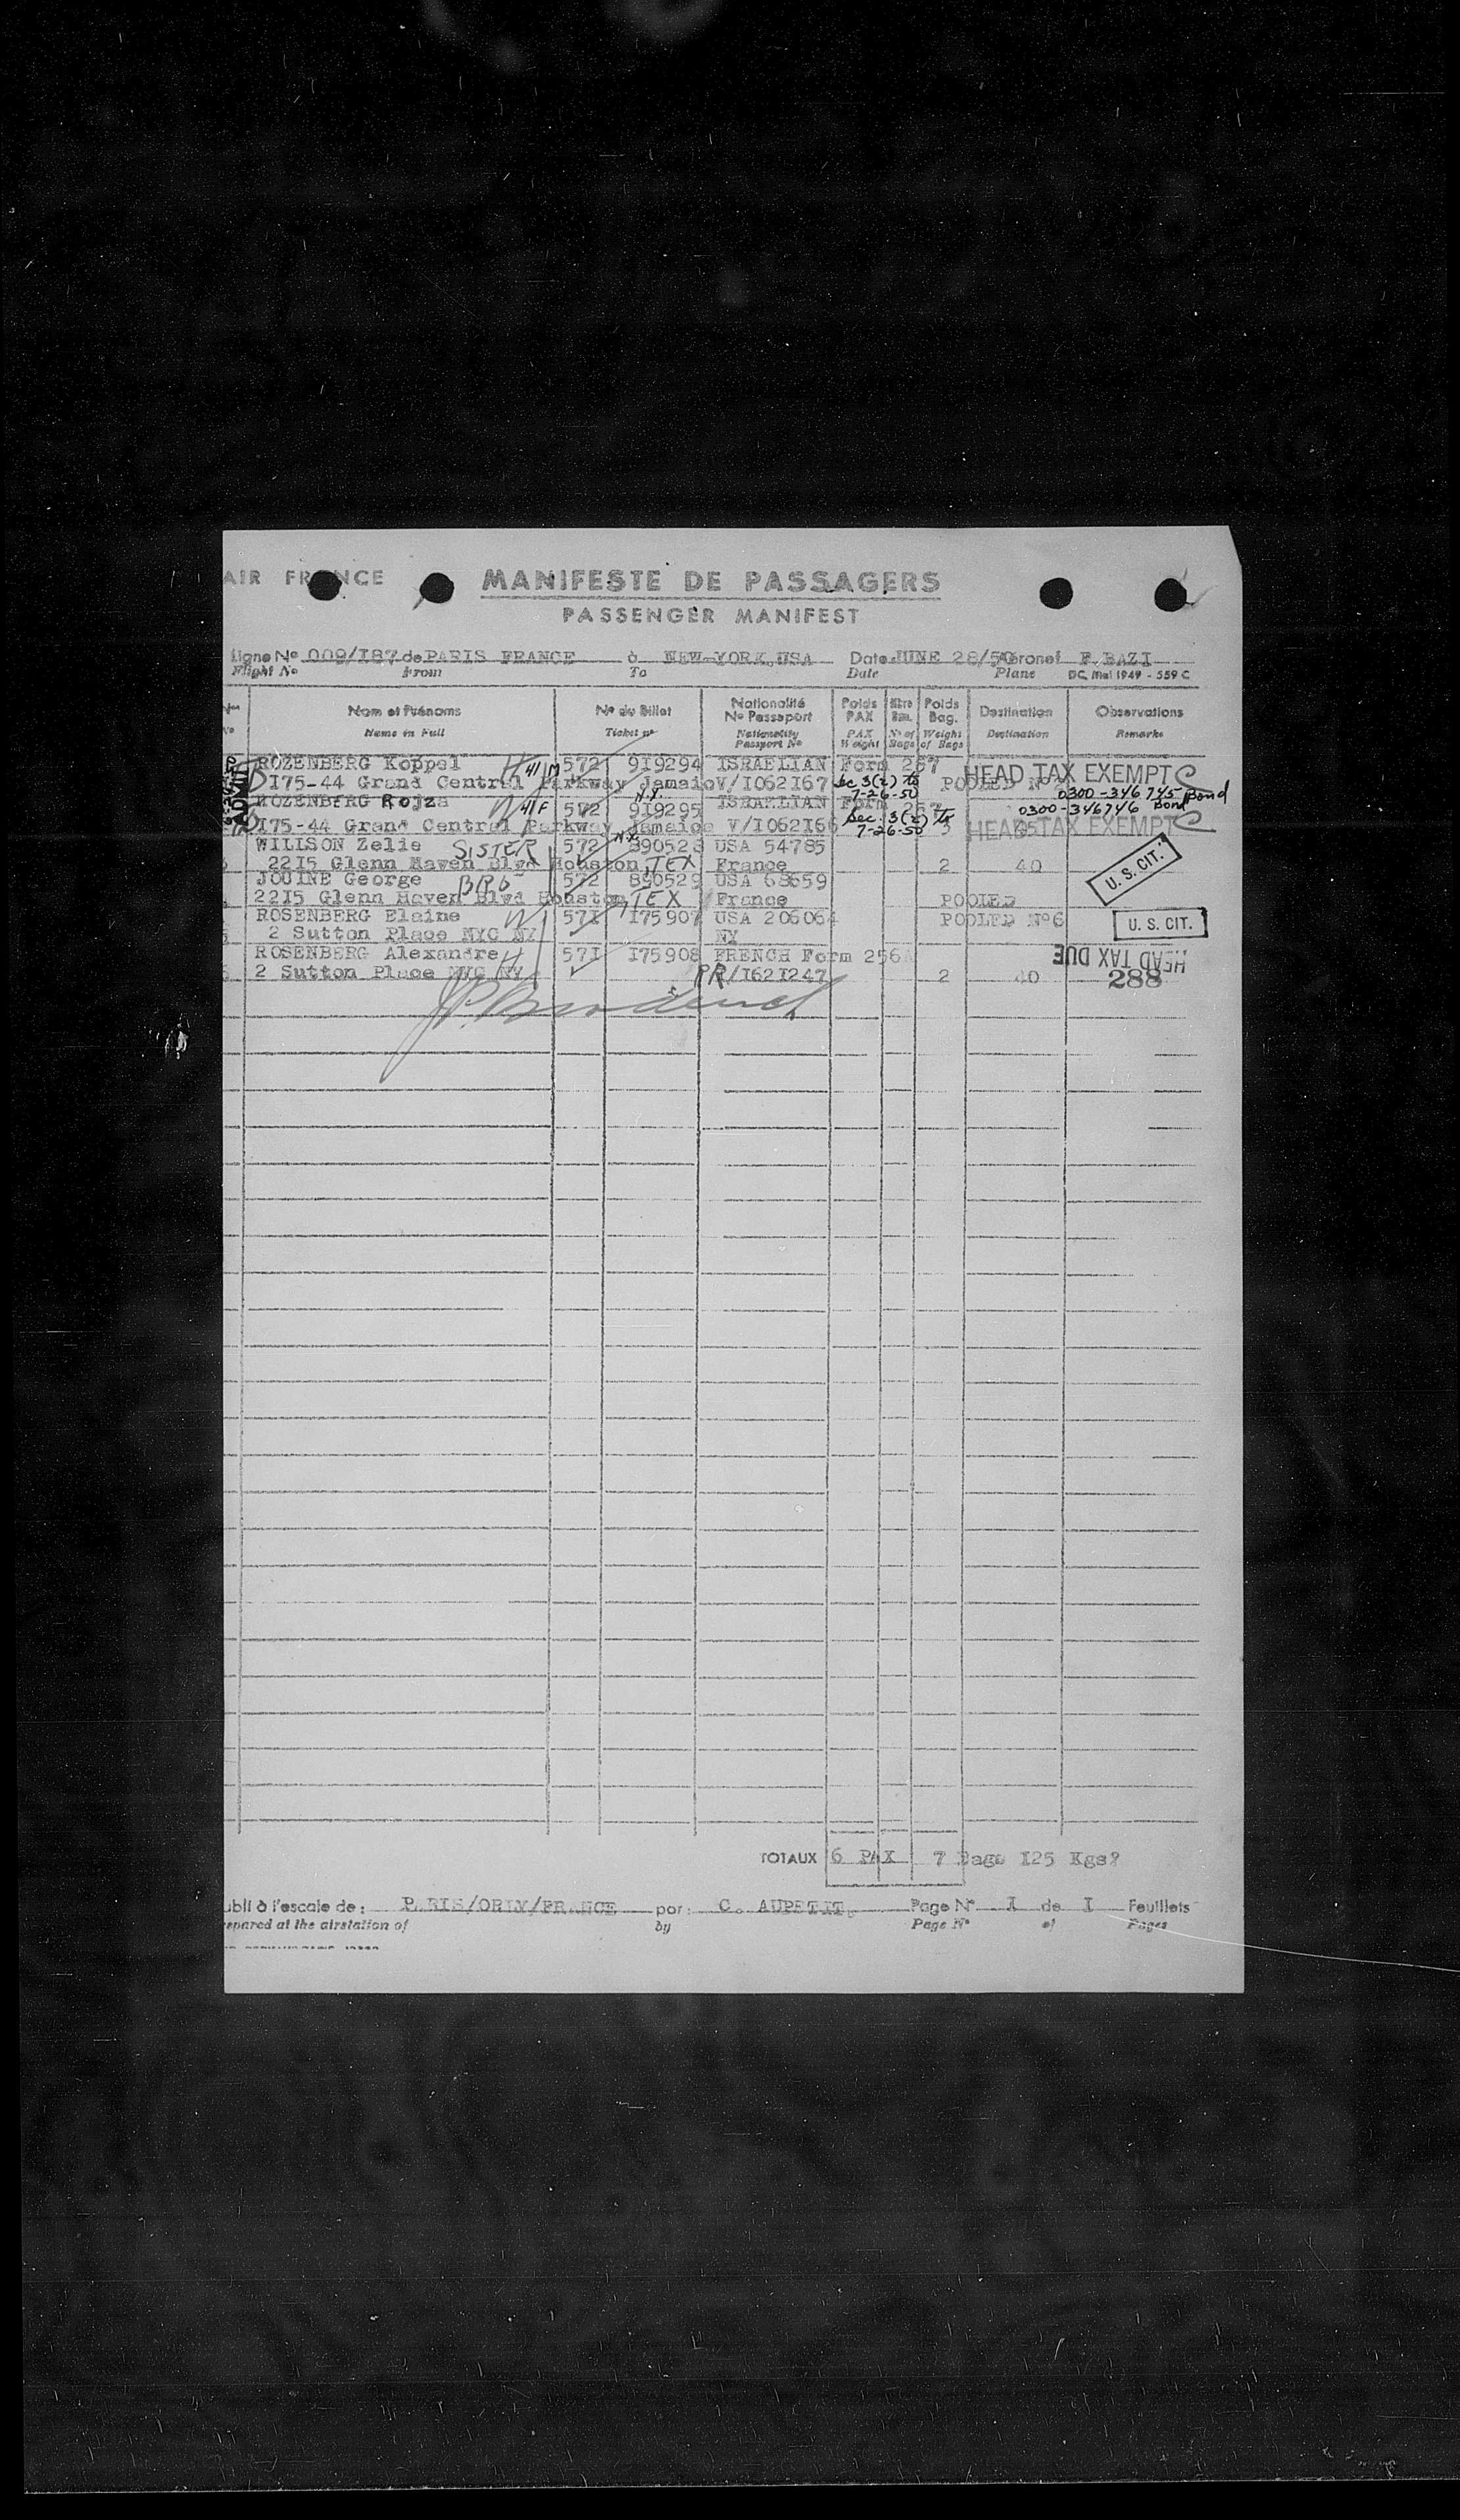 AIR FRANCE MANIFESTE DE PASSAGERS
PASSENGER MANIFEST
Ligne Nº 009/I87 de PARIS FRANCE à NEW-YORK,USA Date JUNE 28/50 Aéronef F.BAZI
Flight Nº From To Date Plane DC. Mai 1949 - 559 C
Nom et Prénoms Nº du Billet Nationalité Nº Passeport Poids PAX Nbre Bag. Poids Bag. Destination Observations
Name in Full Ticket nº Nationality Passport Nº PAX Weight Nº of Bags Weight of Bags Destination Remarks
ROZENBERG Koppel H 41 M 572 9I9294 ISRAELIAN Form 257 HEAD TAX EXEMPT C
I75-44 Grand Central Parkway Jamaic V/I062I67 Sec 3(2) 7-26-50 POOLED Nº 0300-346745 Bond
ROZENBERG Rojza W 41 F 572 9I9295 N.Y. ISRAELIAN Form 257 0300-346746 Bond
I75-44 Grand Central Parkway Jamaica V/I062I66 Sec. 3(2) 7-26-50 3 HEAD TAX EXEMPT C
WILLSON Zelie SISTER 572 890528 N.Y. USA 54785
22I5 Glenn Haven Blvd Houston, TEX France 2 40 U. S. CIT.
JOUINE George BRO 572 890529 USA 68659
22I5 Glenn Haven Blvd Houston, TEX France POOLED
ROSENBERG Elaine W 57I I75907 USA 206064 POOLED Nº6 U. S. CIT.
2 Sutton Place NYC NY NY
ROSENBERG Alexandre H 57I I75908 FRENCH Form 256 HEAD TAX DUE
2 Sutton Place NYC NY PR/I62I247 2 40 288
TOTAUX 6 PAX 7 Bags I25 Kgs
ubli à l'escale de : PARIS/ORLY/FRANCE par : C. AUPETIT. Page Nº I de I Feuillets
epared at the airstation of by Page Nº of Pages